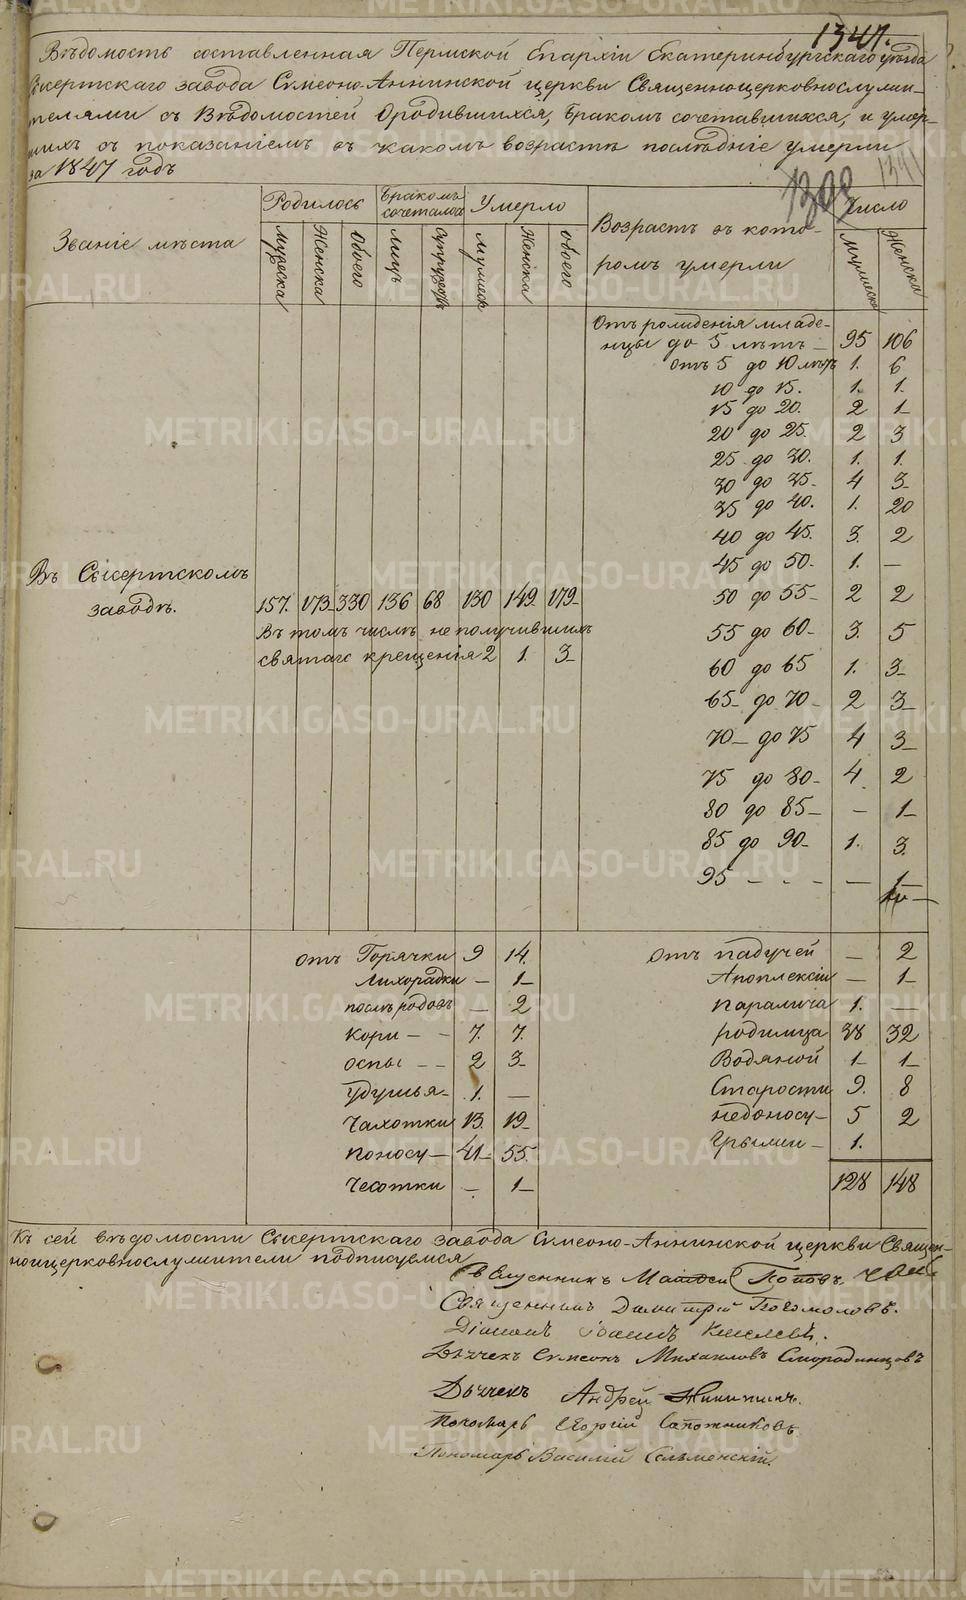 1347.
Вѣдомость составленная Пермской Епархіи Екатеринбургскаго уѣзда
Сысертскаго завода Симеоно-Аннинской церкви Священноцерковнослужи-
телями съ Вѣдомостей о родившихся, бракомъ сочетавшихся, и умер-
шихъ съ показаніемъ въ какомъ возрастѣ послѣдніе умерли
за 1847 годъ
Званіе мѣста
Родилось
Бракомъ сочеталось
Умерло
Возрастъ въ кото-
ромъ умерли
Число
Мужеска Женска Обоего Лицъ Супружествъ Мужеска Женска Обоего Мужеска Женска
Отъ рожденія младе-
нцы до 5 лѣтъ — 95 106
отъ 5 до 10 лѣтъ 1. 6
10 до 15. 1. 1.
15 до 20. 2 1
20 до 25. 2 3
25 до 30. 1. 1.
30 до 35. 4 3
35 до 40. 1. 20
40 до 45. 3. 2
45 до 50. 1. —
50 до 55 2 2
55 до 60 3. 5
60 до 65 1. 3
65 до 70 2 3
70 до 75 4 3
75 до 80 4 2
80 до 85 — 1
85 до 90 1. 3.
95 — — 1
Въ Сысертскомъ
заводѣ. 157. 173 330 136 68 130 149 179
Въ томъ числѣ не получившихъ
святаго крещенія 2 1. 3
отъ Горячки 9 14.
Лихорадки — 1
послѣ родовъ — 2
Кори — 7. 7.
оспы — 2 3
Удушья 1. —
Чахотки 13. 19
Поносу 41 55.
Чесотки — 1
отъ падучей — 2
Апоплексіи — 1
паралича 1. —
родимца 38 32
Водяной 1 1
Старости 9. 8
недоносу 5 2
Грыжи 1.
128 148
Къ сей вѣдомости Сысертскаго завода Симеоно-Аннинской церкви Священ-
ноцерковнослужители подписуемся
Священникъ Матѳей Поповъ
Священникъ Димитрій Богомоловъ.
Діаконъ Іоаннъ Киселевъ.
Дьячекъ Симеонъ Михаиловъ Смородинцовъ
Дьячекъ Андрей Никитинъ.
Пономарь Георгій Сапожниковъ
Пономарь Василій Сельменскій.
METRIKI.GASO-URAL.RU